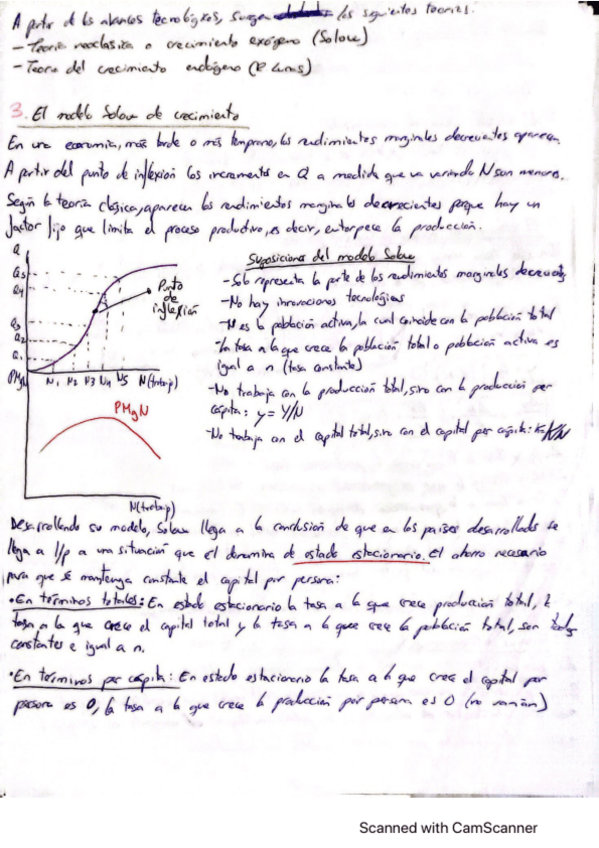 A partir de los avances tecnológicos, surgen los siguientes teorías:
- Teoría neoclásica o crecimiento exógeno (Solow)
- Teoría del crecimiento endógeno (R Lucas)
3. El modelo Solow de crecimiento
En una economía, más tarde o más temprano, los rendimientos marginales decrecientes aparecen.
A partir del punto de inflexión los incrementos en Q a medida que va variando N son menores.
Según la teoría clásica, aparecen los rendimientos marginales decrecientes porque hay un
factor fijo que limita el proceso productivo, es decir, entorpece la producción.
Q
Q5
Q4
Q3
Q2
Q1
Punto
de
inflexión
N1 N2 N3 N4 N5 N(trabajo)
PMgN
PMgN
N(trabajo)
Suposiciones del modelo Solow
- Solo representa la parte de los rendimientos marginales decrecientes
- No hay innovaciones tecnológicas
- N es la población activa, la cual coincide con la población total
- La tasa a la que crece la población total o población activa es
igual a n (tasa constante)
- No trabaja con la producción total, sino con la producción per
cápita: y = Y/N
- No trabaja con el capital total, sino con el capital per cápita: K/N
Desarrollando su modelo, Solow llega a la conclusión de que en los países desarrollados se
llega a l/p a una situación que el denomina de estado estacionario. El ahorro necesario
para que se mantenga constante el capital por persona:
• En términos totales: En estado estacionario la tasa a la que crece producción total, la
tasa a la que crece el capital total y la tasa a la que crece la población total, son todas
constantes e igual a n.
• En términos per cápita: En estado estacionario la tasa a la que crece el capital por
persona es 0, la tasa a la que crece la producción por persona es 0 (no varían)
Scanned with CamScanner